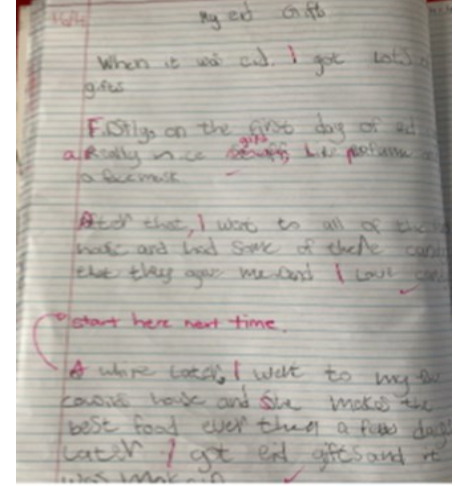 My eid Gifts
When it was eid. I got Lots
gifts
Firstlys on the first day of ed
a Really nice gifts
a facemask
After that, I went to all of
house and had some of there
that they gave me and I Love
start here next time.
A while later, I went to my
cousins house and She makes the
best food ever then a few days
Later I got eid gifts and it
was